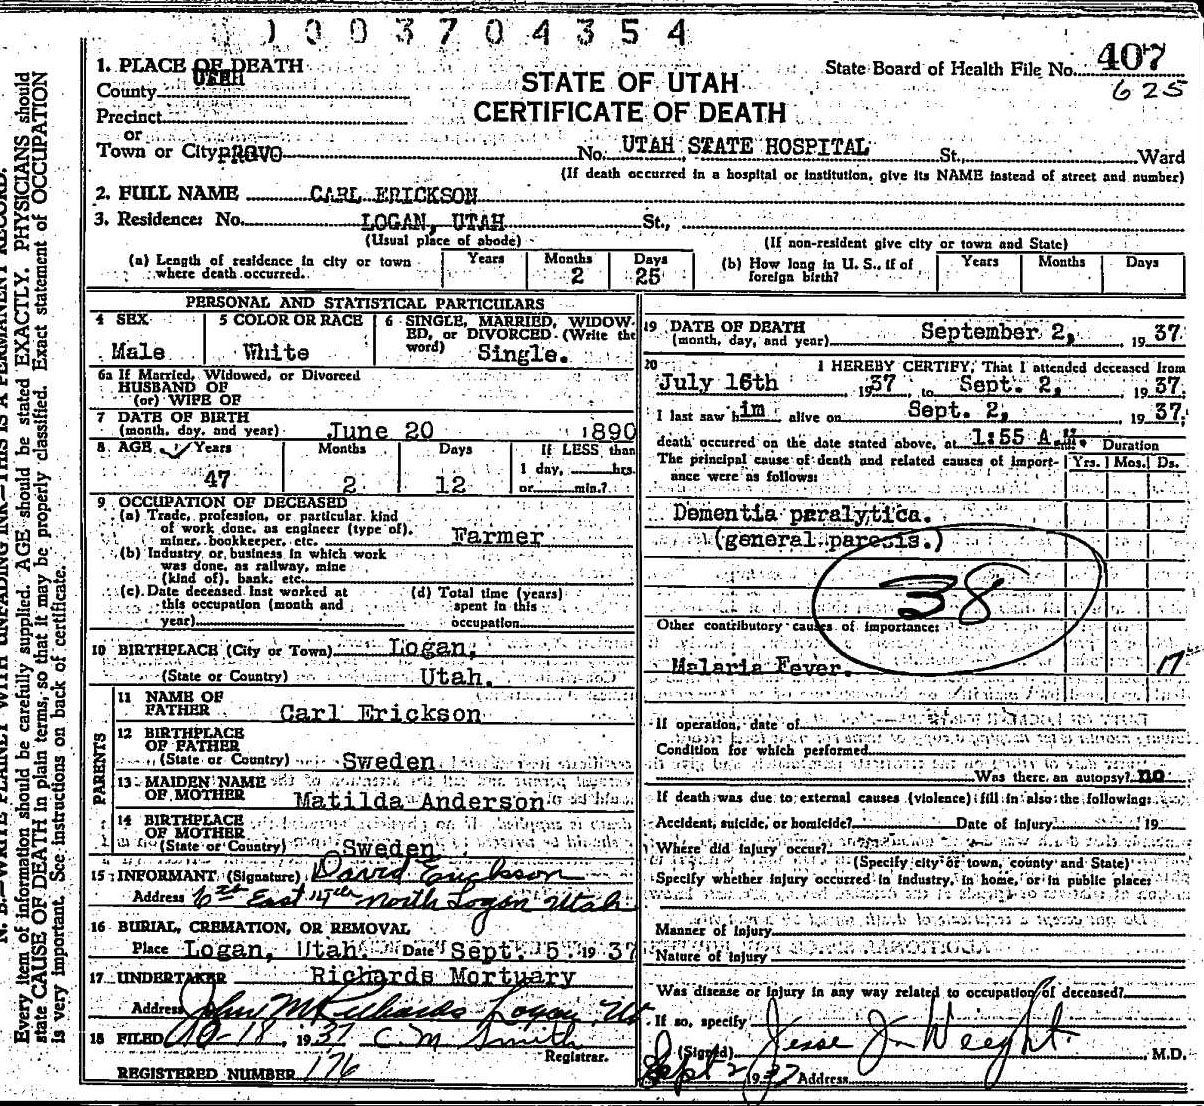 1003704354
1. PLACE OF DEATH
County UTAH
STATE OF UTAH
CERTIFICATE OF DEATH
State Board of Health File No. 407
625
Precinct
or
Town or City PROVO No. UTAH STATE HOSPITAL St., Ward
(If death occurred in a hospital or institution, give its NAME instead of street and number)
2. FULL NAME CARL ERICKSON
3. Residence: No. LOGAN, UTAH St.,
(Usual place of abode) (If non-resident give city or town and State)
(a) Length of residence in city or town where death occurred. Years Months 2 Days 25
(b) How long in U. S., if of foreign birth? Years Months Days
PERSONAL AND STATISTICAL PARTICULARS
4 SEX Male
5 COLOR OR RACE White
6 SINGLE, MARRIED, WIDOWED, or DIVORCED. (Write the word) Single.
6a If Married, Widowed, or Divorced
HUSBAND OF
(or) WIFE OF
7 DATE OF BIRTH
(month, day, and year) June 20 1890
8 AGE Years 47 Months 2 Days 12 If LESS than 1 day, hrs. or min.?
9 OCCUPATION OF DECEASED
(a) Trade, profession, or particular kind
of work done, as engineer (type of),
miner, bookkeeper, etc. Farmer
(b) Industry or business in which work
was done, as railway, mine
(kind of), bank, etc.
(c) Date deceased last worked at
this occupation (month and
year)
(d) Total time (years)
spent in this
occupation
10 BIRTHPLACE (City or Town) Logan,
(State or Country) Utah.
PARENTS
11 NAME OF
FATHER Carl Erickson
12 BIRTHPLACE
OF FATHER
(State or Country) Sweden
13 MAIDEN NAME
OF MOTHER Matilda Anderson
14 BIRTHPLACE
OF MOTHER
(State or Country) Sweden
15 INFORMANT (Signature) David Erickson
Address 6th East 14th North Logan Utah
16 BURIAL, CREMATION, OR REMOVAL
Place Logan, Utah. Date Sept. 5 1937
17 UNDERTAKER Richards Mortuary
Address John M Richards Logan, Ut
18 FILED 10-18, 1937 C. M Smith
Registrar.
REGISTERED NUMBER 176
19 DATE OF DEATH
(month, day, and year) September 2, 1937.
20 I HEREBY CERTIFY, That I attended deceased from
July 16th 1937 to Sept. 2, 1937.
I last saw him alive on Sept. 2, 1937.
death occurred on the date stated above, at 1:55 A.M. Duration
The principal cause of death and related causes of importance were as follows: Yrs. Mos. Ds.
Dementia paralytica.
(general paresis.)
38
Other contributory causes of importance:
Malaria Fever. 17
If operation, date of
Condition for which performed
Was there an autopsy? no
If death was due to external causes (violence) fill in also the following:
Accident, suicide, or homicide? Date of injury 19
Where did injury occur?
(Specify city or town, county and State)
Specify whether injury occurred in industry, in home, or in public place:
Manner of injury
Nature of injury
Was disease or injury in any way related to occupation of deceased?
If so, specify
(Signed) Jesse J. Weight. M.D.
Sept 2 1937 Address
N. B.—WRITE PLAINLY WITH UNFADING INK—THIS IS A PERMANENT RECORD.
Every item of information should be carefully supplied. AGE should be stated EXACTLY. PHYSICIANS should
state CAUSE OF DEATH in plain terms, so that it may be properly classified. Exact statement of OCCUPATION
is very important. See instructions on back of certificate.